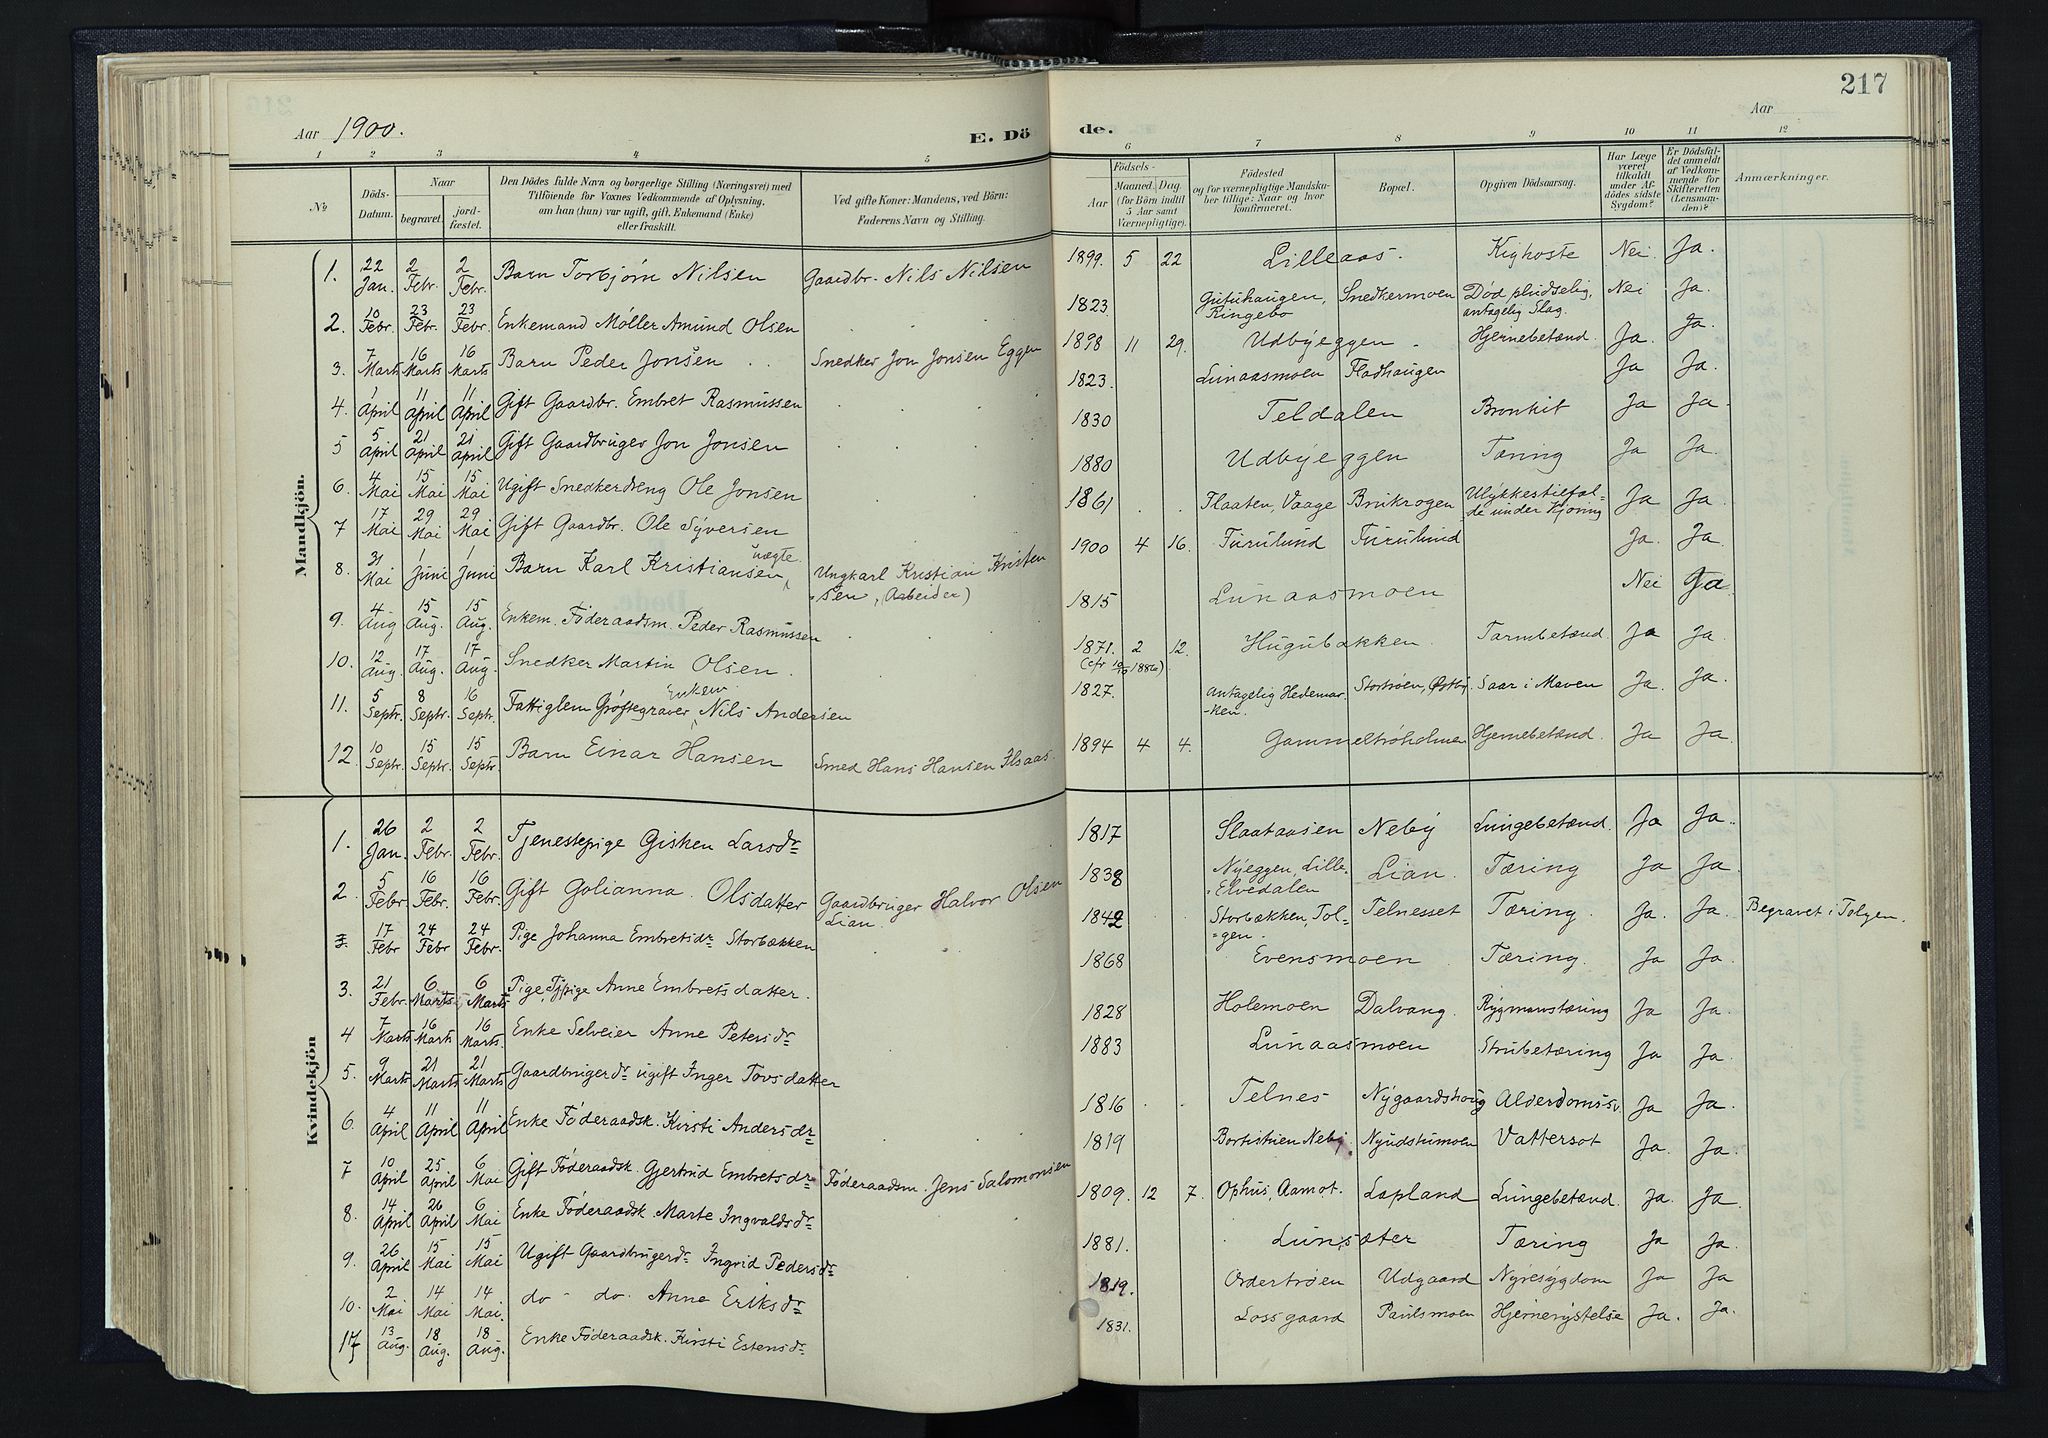 217
Aar 1900.
E. Dö de.
Aar
1 2 3 4 5 6 7 8 9 10 11 12
№
Döds-Datum.
Naar
begravet.
jord-fæstet.
Den Dödes fulde Navn og borgerlige Stilling (Næringsvei) med
Tilföiende for Voxnes Vedkommende af Oplysning,
om han (hun) var ugift, gift, Enkemand (Enke)
eller fraskilt.
Ved gifte Koner: Mandens, ved Börn:
Faderens Navn og Stilling.
Födsels-
Aar
Maaned. Dag.
(for Börn indtil
5 Aar samt
Værnepligtige).
Födested
og for værnepligtige Mandska-
ber tillige: Naar og hvor
konfirmeret.
Bopæl.
Opgiven Dödsaarsag.
Har Læge
været
tilkaldt
under Af-
dödes sidste
Sygdom?
Er Dödsfal-
det anmeldt
af Vedkom-
mende for
Skifteretten
(Lensman-
den)?
Anmærkninger.
Mandkjön.
1. 22 Jan. 2 Febr. 2 Febr. Barn Torbjørn Nilsen Gaardbr. Nils Nilsen 1899. 5 22 Lilleaas. Kighoste Nei Ja.
2. 10 Febr. 23 Febr. 23 Febr. Enkemand Møller Amund Olsen 1823. Gutuhaugen, Ringebo Snedkermoen Død pludselig, antagelig Slag. Nei Ja.
3. 7 Marts 16 Marts 16 Marts Barn Peder Jonsen Snedker Jon Jonsen Eggen 1898 11 29. Udbyeggen Hjernebetænd. Ja. Ja.
4. 1 April 11 April 11 April Gift Gaardbr. Embret Rasmussen 1823. Lunaasmoen Fladhaugen Ja Ja.
5 5 April 21 April 21 April Gift Gaardbruger Jon Jonsen 1830 Teldalen Bronkit Ja Ja.
6. 4 Mai 15 Mai 15 Mai Ugift Snedkerdreng Ole Jonsen 1880 Udbyeggen Tæring Ja Ja.
7 17 Mai 29 Mai 29 Mai Gift Gaardbr. Ole Syversen 1861 Flaaten, Vaage Brukrogen Ulykkestilfæl-de under Kjøring Ja Ja.
8. 31 Mai 1 Juni 1 Juni Barn Karl Kristiansen uægte Ungkarl Kristian Kristen-sen, (Arbeider) 1900 4 16. Furulund Furulund Ja. Ja
9. 4 Aug 15 Aug. 15 Aug. Enkem. Føderaadsm. Peder Rasmussen 1815 Lunaasmoen Nei Ja
10. 12 Aug. 17 Aug. 17 Aug. Snedker Martin Olsen. 1871. 2 12. Hugubakken. Tarmbetænd. Ja Ja.
11. 5 Septr. 8 Septr. 16 Septr. Fattiglem Grøftegraver Enkem Nils Andersen 1827. Antagelig Hedemar-ken. Stortrøen, Østby Saar i Maven Ja. Ja.
12. 10 Septr. 15 Septr. 15 Septr. Barn Einar Hansen Smed Hans Hansen Ilsaas. 1894 4 4. Gammeltrøholmen Hjernebetænd. Ja Ja.
Kvindekjön
1. 26 Jan. 2 Febr. 2 Febr. Tjenestepige Gisken Larsdr 1817 Slaataasen Neby Lungebetænd. Ja Ja.
2. 5 Febr. 16 Febr. 16 Febr. Gift Golianna Olsdatter Gaardbruger Halvor Olsen Lian. 1838 Nyeggen, Lille-Elvedalen Lian. Tæring Ja Ja.
17 Febr 24 Febr 24 Febr. Pige Johanna Embretsdr Storbækken 1842 Storbækken, Tol-gen. Telnesset Tæring. Ja. Ja. Begravet i Tolgen.
3. 21 Febr. 6 Marts 6 Marts Pige, Anne Embretsdatter. 1868 Evensmoen Tæring. Ja Ja.
4 7 Marts 16 Marts 16 Marts. Enke Selveier Anne Petersdr 1828 Holemoen Dalvang. Rygmarvstæring Ja Ja.
5. 9 Marts 21 Marts 21 Marts Gaardbrugerdr ugift Inger Tovsdatter 1883 Lunaasmoen Strubetæring Ja Ja.
6. 4 April 11 April 11 April Enke Føderaadsk. Kirsti Andersdr 1816 Telnes Nygaardshoug Alderdomssv. Ja Ja.
7 10 April 25 April 6 Mai Gift Føderaadsk. Gjertrud Embretsdr Føderaadsm. Jens Salomonsen 1819 Neby. Nyudstumoen Vattersot Ja. Ja.
8. 14 April 26 April 6 Mai Enke Føderaadsk. Marte Ingvaldsdr 1809. 12 7. Ophus, Aamot. Lapland Lungebetænd. Ja. Ja.
9. 26 April 15 Mai 15 Mai Ugift Gaardbrugerdr Ingrid Pedersdr 1881. Lunsæter Tæring Ja Ja.
10. 2 Mai 14 Mai 14 Mai. do - do. Anne Eriksdr 1819. Ordertrøen Udgaard Nyresygdom Ja Ja
13 Aug. 18 Aug. 18 Aug. Enke Føderaadsk. Kirsti Estensdr 1831. Lossgaard Paulsmoen Hjernerystelse Ja. Ja.